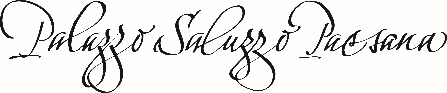 Palazzo Saluzzo Paesana